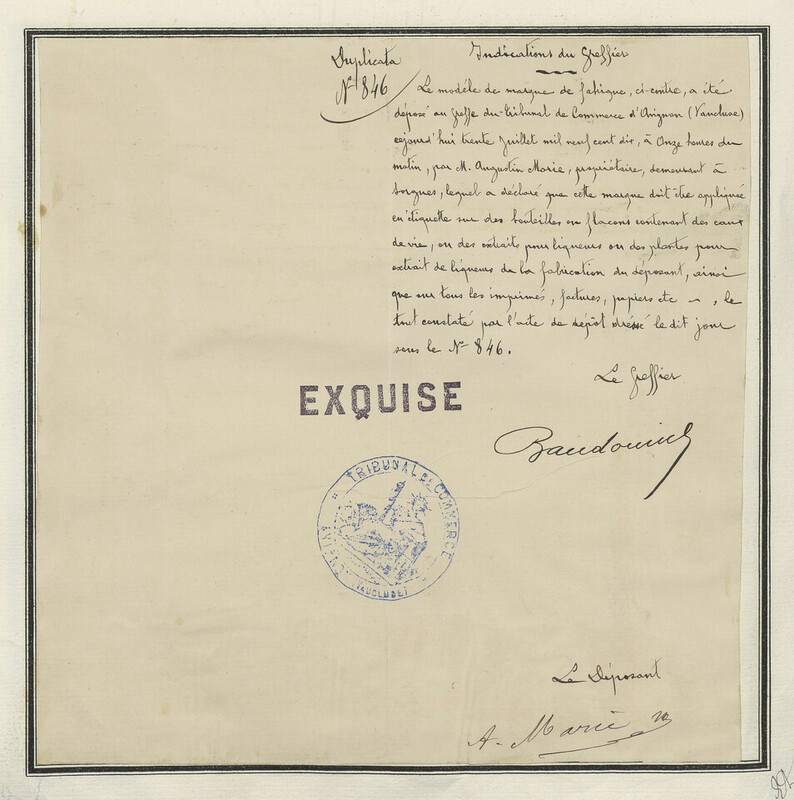 Duplicata
N° 846
Indications du Greffier
Le modèle de marque de fabrique, ci-contre, a été
déposé au greffe du Tribunal de Commerce d'Avignon (Vaucluse)
cejourd'hui trente Juillet mil neuf cent dix, à Onze heures du
matin, par M. Augustin Marie, propriétaire, demeurant à
Sorgues, lequel a déclaré que cette marque doit être appliquée
en étiquette sur des bouteilles ou flacons contenant des eaux
de vie, ou des extraits pour liqueurs ou des plantes pour
extrait de liqueurs de la fabrication du déposant, ainsi
que sur tous les imprimés, factures, papiers etc -, le
tout constaté par l'acte de dépôt dressé le dit jour
sous le N° 846.
Le Greffier
EXQUISE
TRIBUNAL DE COMMERCE
AVIGNON
(VAUCLUSE)
Le Déposant
A. Marie